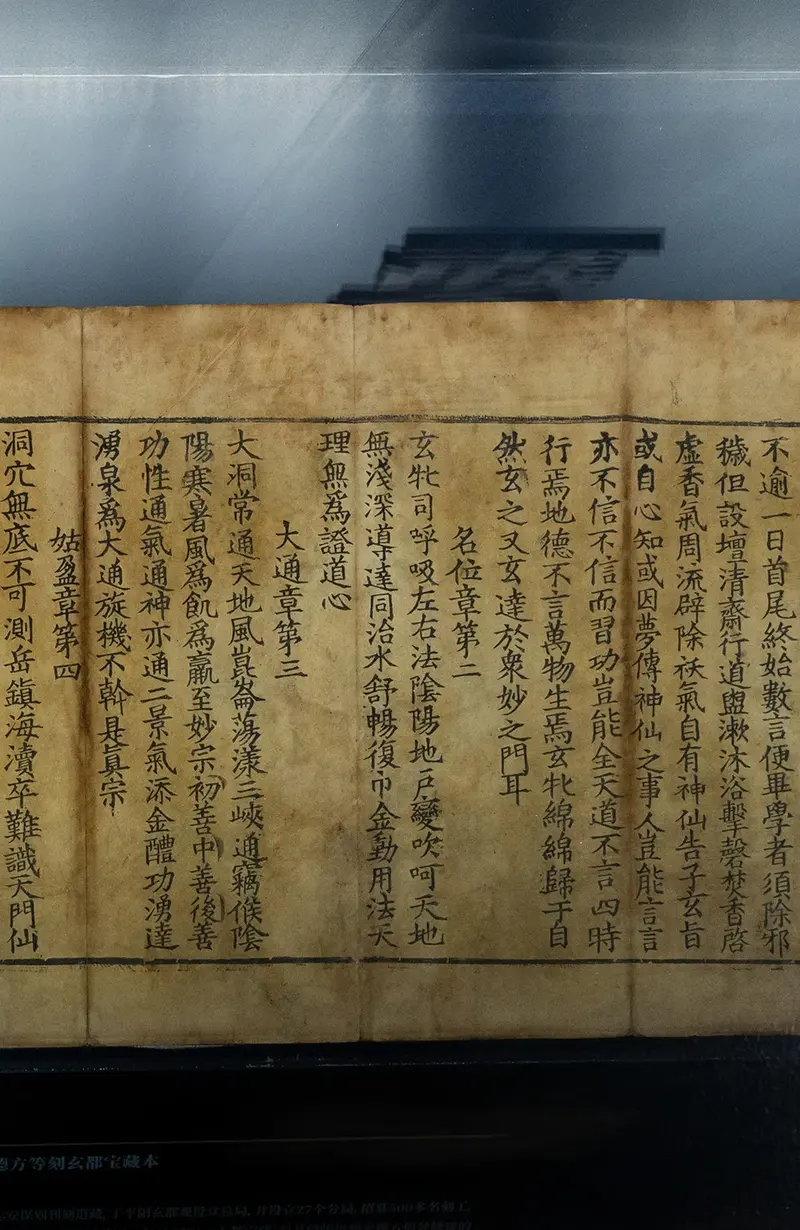 不逾一日首尾終始數言便畢學者須除邪
穢但設壇清齋行道盥漱沐浴擊磬焚香啓
虛香氣周流辟除祆氣自有神仙告子玄旨
或自心知或因夢傳神仙之事人豈能言言
亦不信不信而習功豈能全天道不言四時
行焉地德不言萬物生焉玄牝綿綿歸于自
然玄之又玄達於衆妙之門耳
名位章第二
玄牝司呼吸左右法陰陽地戶變吹呵天地
無淺深導達同治水舒暢復巾金動用法天
理無爲證道心
大通章第三
大洞常通天地風崑崙蕩漾三峽通竊候陰
陽寒暑風爲飢爲羸至妙宗初善中善後善
功性通氣通神亦通二景氣添金醴功湧達
湧泉爲大通旋機不幹是真宗
姑盈章第四
洞穴無底不可測岳鎮海瀆卒難識天門仙
德方等刻玄都宝藏本